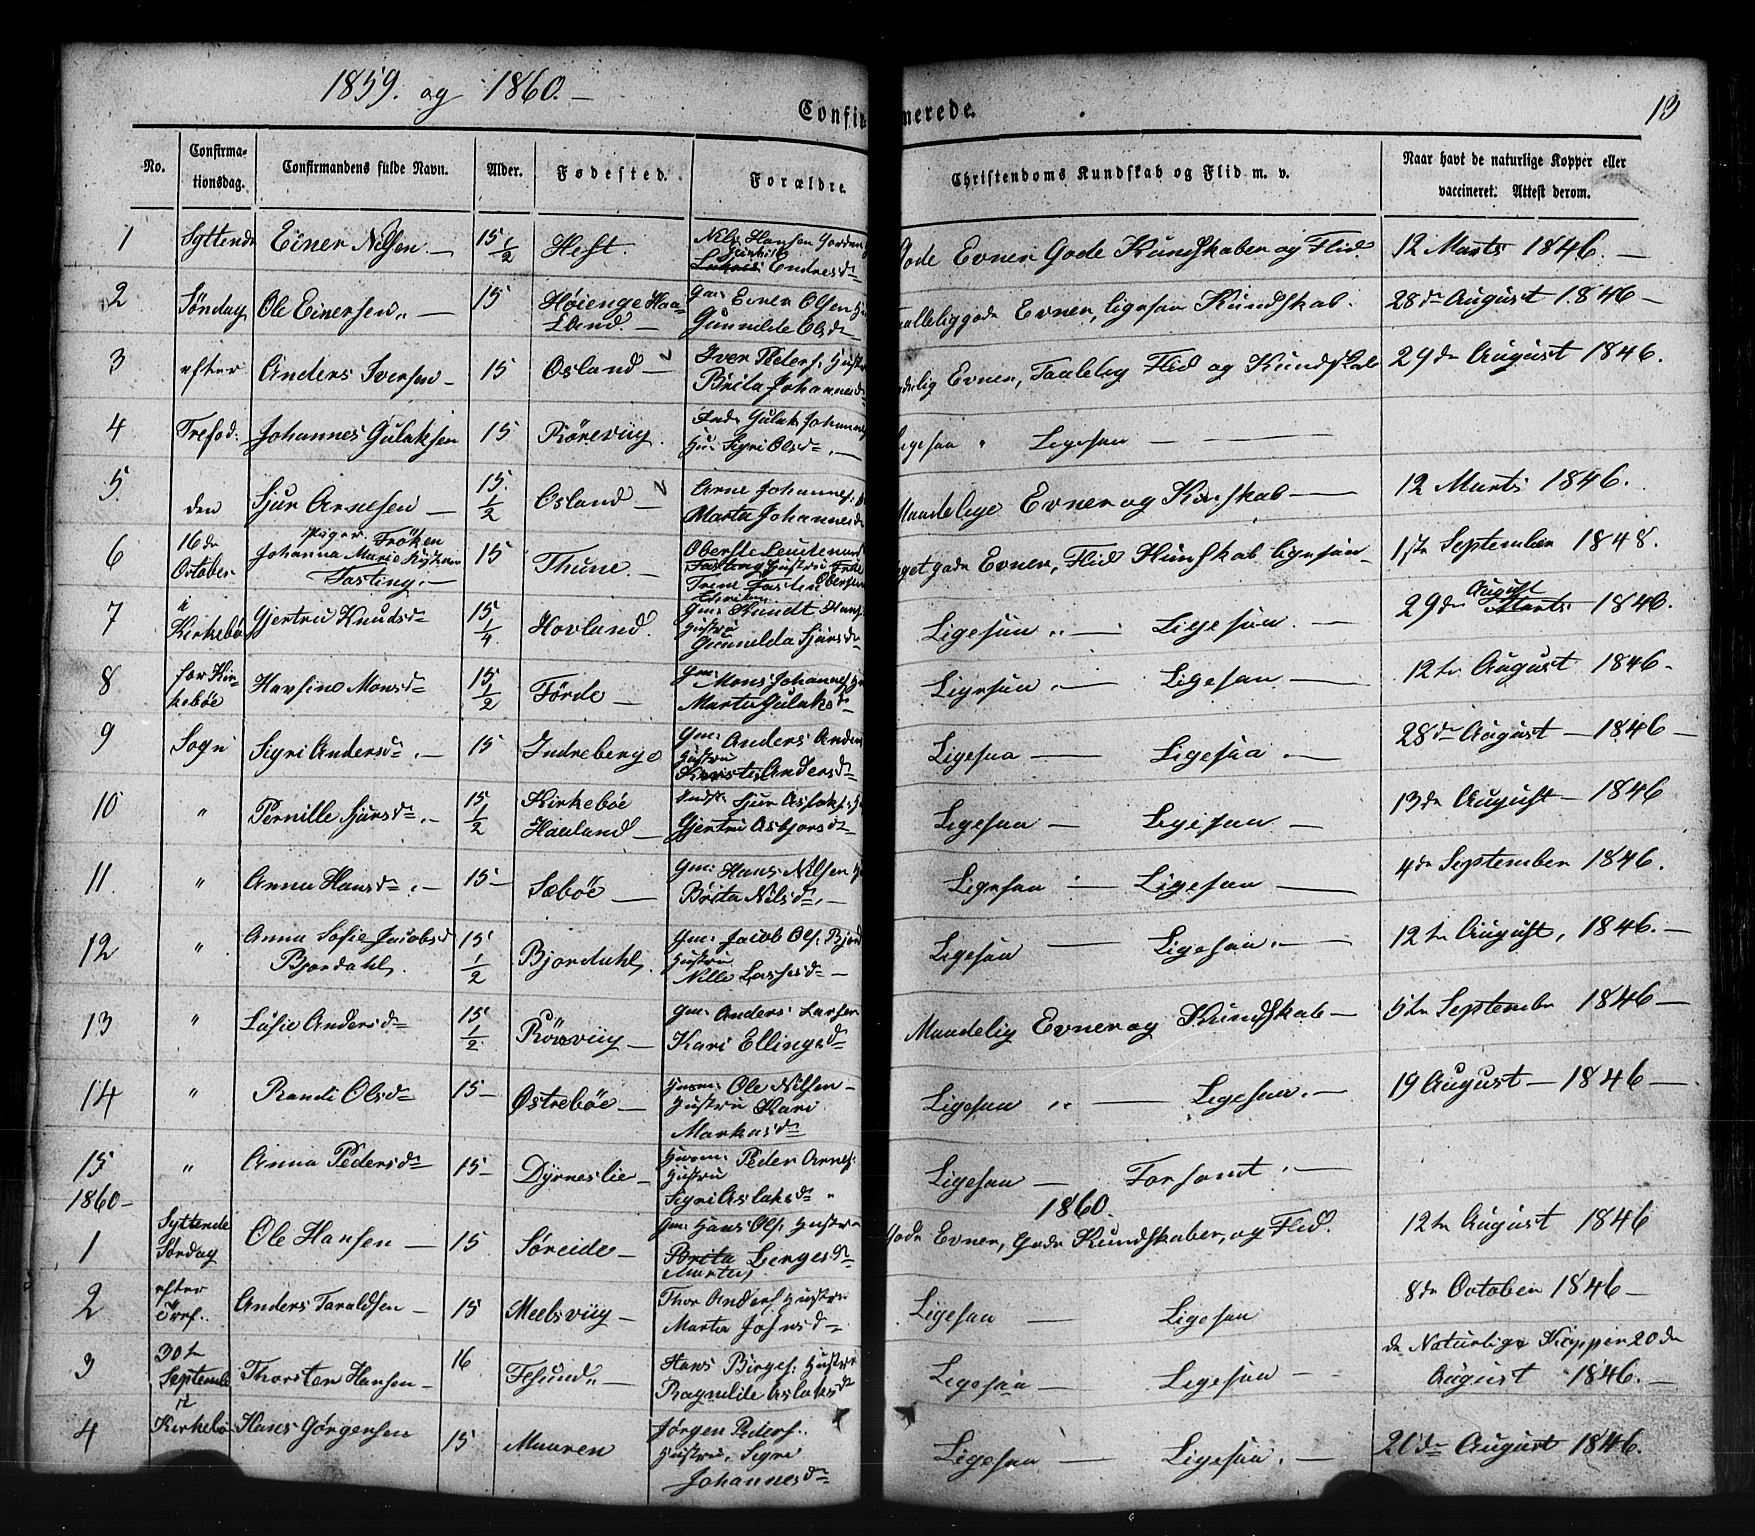 1859. og 1860. —
Confir
merede.
13
No.
Confirma-
tionsdag.
Confirmandens fulde Navn.
Alder.
Fødested.
Forældre.
Christendoms Kundskab og Flid m. v.
Naar havt de naturlige Kopper eller
vaccineret. Attest derom.
1 Syttende Einer Nilsen — 15 1/2 Heft. Nils Hansen
Endresd
Gode Evner Gode Kundskaber og Flid. 12 Marts 1846. —
2 Søndag Ole Einersen — 15 Høienge Haa-
land — Gm: Einer Olsen
Gunnilde Olsd
Evner, ligesaa Kundskab. 28de August 1846 —
3 efter Anders Iversen — 15 Osland — Iver Peders: Hustru
Brita Johannesd
Evner, Flid og Kundskab 29de August 1846.
4 Trefod: Johannes Gulaksen 15 Rørevüg. Gulak Johannes
Hu: Sigri Olsd —
Ligesaa " Ligesaa —
5. den Sjur Arnesen — 15. 1/2 Osland — Arne Johannes:
Marta Johannesd
Maadelige Evner og Kunskab — 12 Marts 1846.
6 16de
October
Piger. Fröken
Johanna Marie
Fasting. — 15 Thune. — Oberste Leutenand
Fasting Hustru
Evner, Flid Kunskab ligesaa — 1ste September 1848.
7 i
Kirkebø Gjertru Knudsd 15 1/4 Hovland. Gm: Knudt Hans:
Hustru
Gunnilda Sjursd —
Ligesaa " — Ligesaa. — 29de August
Marts 1846.
8 for Kir-
kebøe Monsd 15 1/2 Förde — Gm: Mons Johannes:
Marta Gulaksd —
Ligesaa — Ligesaa — 12te August 1846 —
9 Sogn Sigri Andersd. — 15 Indreberge Gm: Anders Anders
Hustru
Andersd —
Ligesaa — Ligesaa — 28de August — 1846 —
10 " Pernille Sjursd. — 15 1/2 Kirkebøe
Haaland — Sjur Aslaks:
Gjertru Asbjorsd —
Ligesaa — Ligesaa — 13de August — 1846
11. " Anna Hansd. — 15 — Sæbøe — Gm: Hans Nilsen
Brita Nilsd. —
Ligesaa — Ligesaa — 4de September 1846.
12 " Anna Sofie Jacobsd
Bjordahl. 15 1/2 Bjordahl. Gm: Jacob Ols: Bjord
Hustru
Nille Lassesd —
Ligesaa — Ligesaa. — 12te August, 1846. —
13 " Andersd — 15 1/2 Rörevüg — Gm: Anders Larsen
Kari Ellingsd
Maadelig Evner og Kundskab — 5te September 1846 —
14 " Randi Olsd — 15 — Østrebøe — Huusm: Ole Nilsen —
Hustru Kari
Markusd
Ligesaa " — Ligesaa. — 19 August — 1846 —
15 " Anna Pedersd — 15 — Dyrneslie — Huusm: Peder Arnes:
Hustru
Sigri Aslaksd "
Ligesaa — Forsømt. —
1860 —
1860.
1 Syttende
Søndag Ole Hansen — 15 Søreide — Gm: Hans Ols: Hustru
Brita Børgesd
Marta
Gode Evner, Gode Kundskaber, og Flid. 12te August 1846
2 efter
Tref.. Anders Taraldsen — 15 Meelsvüg — Thor Anders: Hustru
Marta
Ligesaa Ligesaa 8de October 1846 —
3 30te
September Thorsten Hansen — 16 Hans Birges: Hustru
Ragnilde Aslaksd
Ligesaa — Ligesaa — de Naturlige Kopper 20de
August 1846. —
4 i
Kirkebø Hans Gørgensen 15 Maaren Jørgen Peders:
Hustru. Sigri
Johannesd
Ligesaa — Ligesaa. — 20de August 1846.